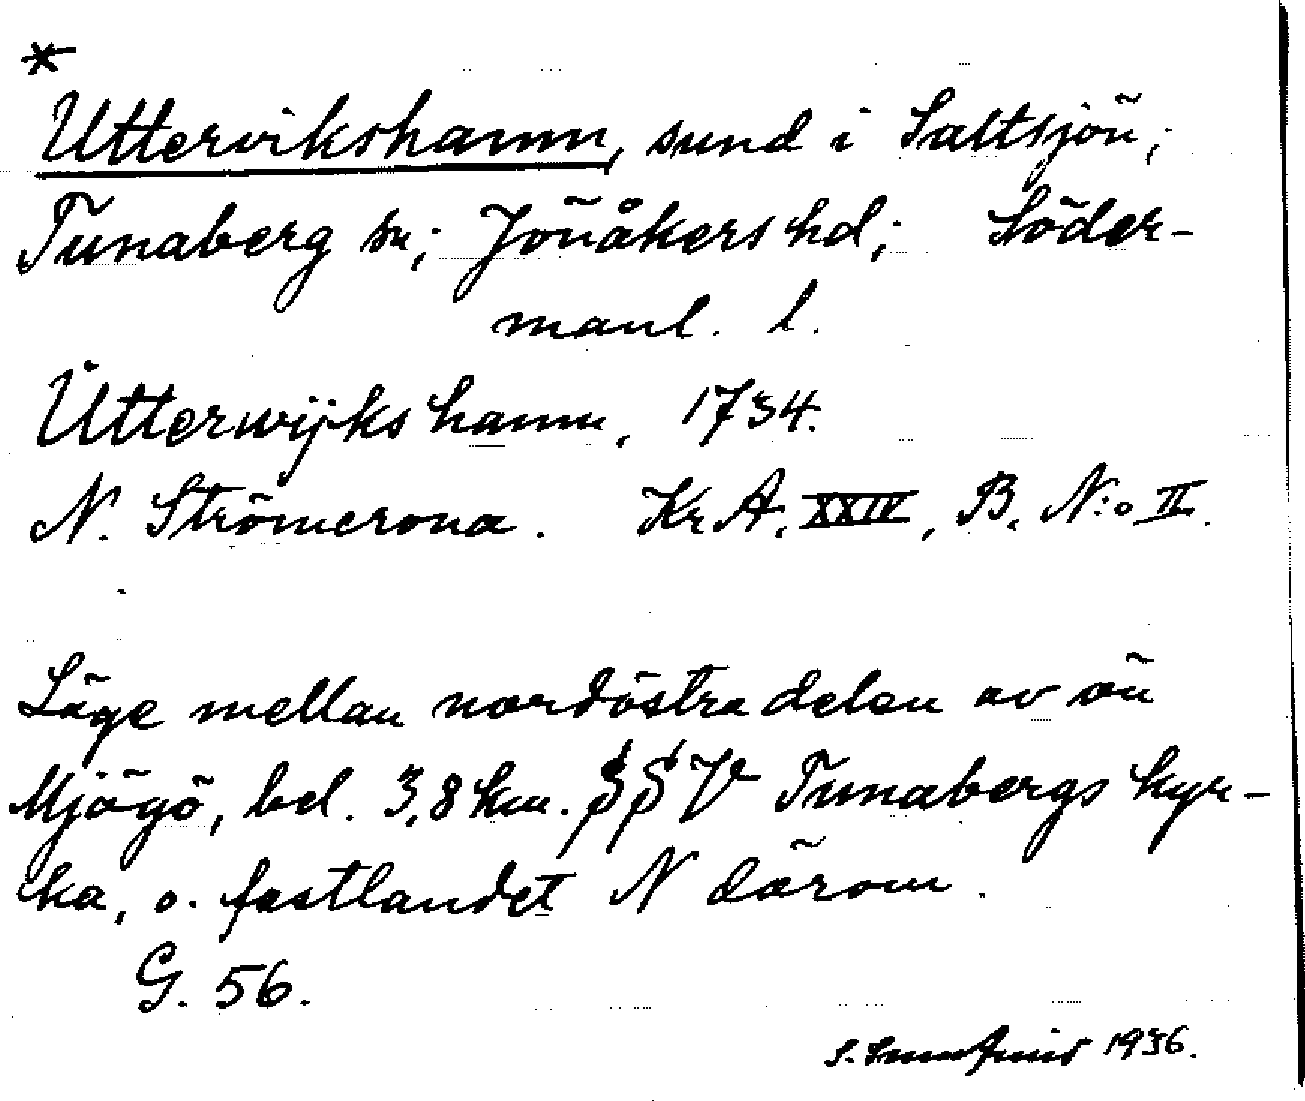 *
Uttervikshamn, sund i Saltsjön;
Tunaberg sn; Jönåkers hd; Söder-
manl. l.
Utterwijks hamn, 1734.
N. Strömcrona. Kr A, XXIV, B, N:o II.
Läge mellan nordöstra delen av ön
Mjögö, bel. 3,8 km. SSV Tunabergs kyr-
ka, o. fastlandet N därom.
G. 56.
S. 1936.